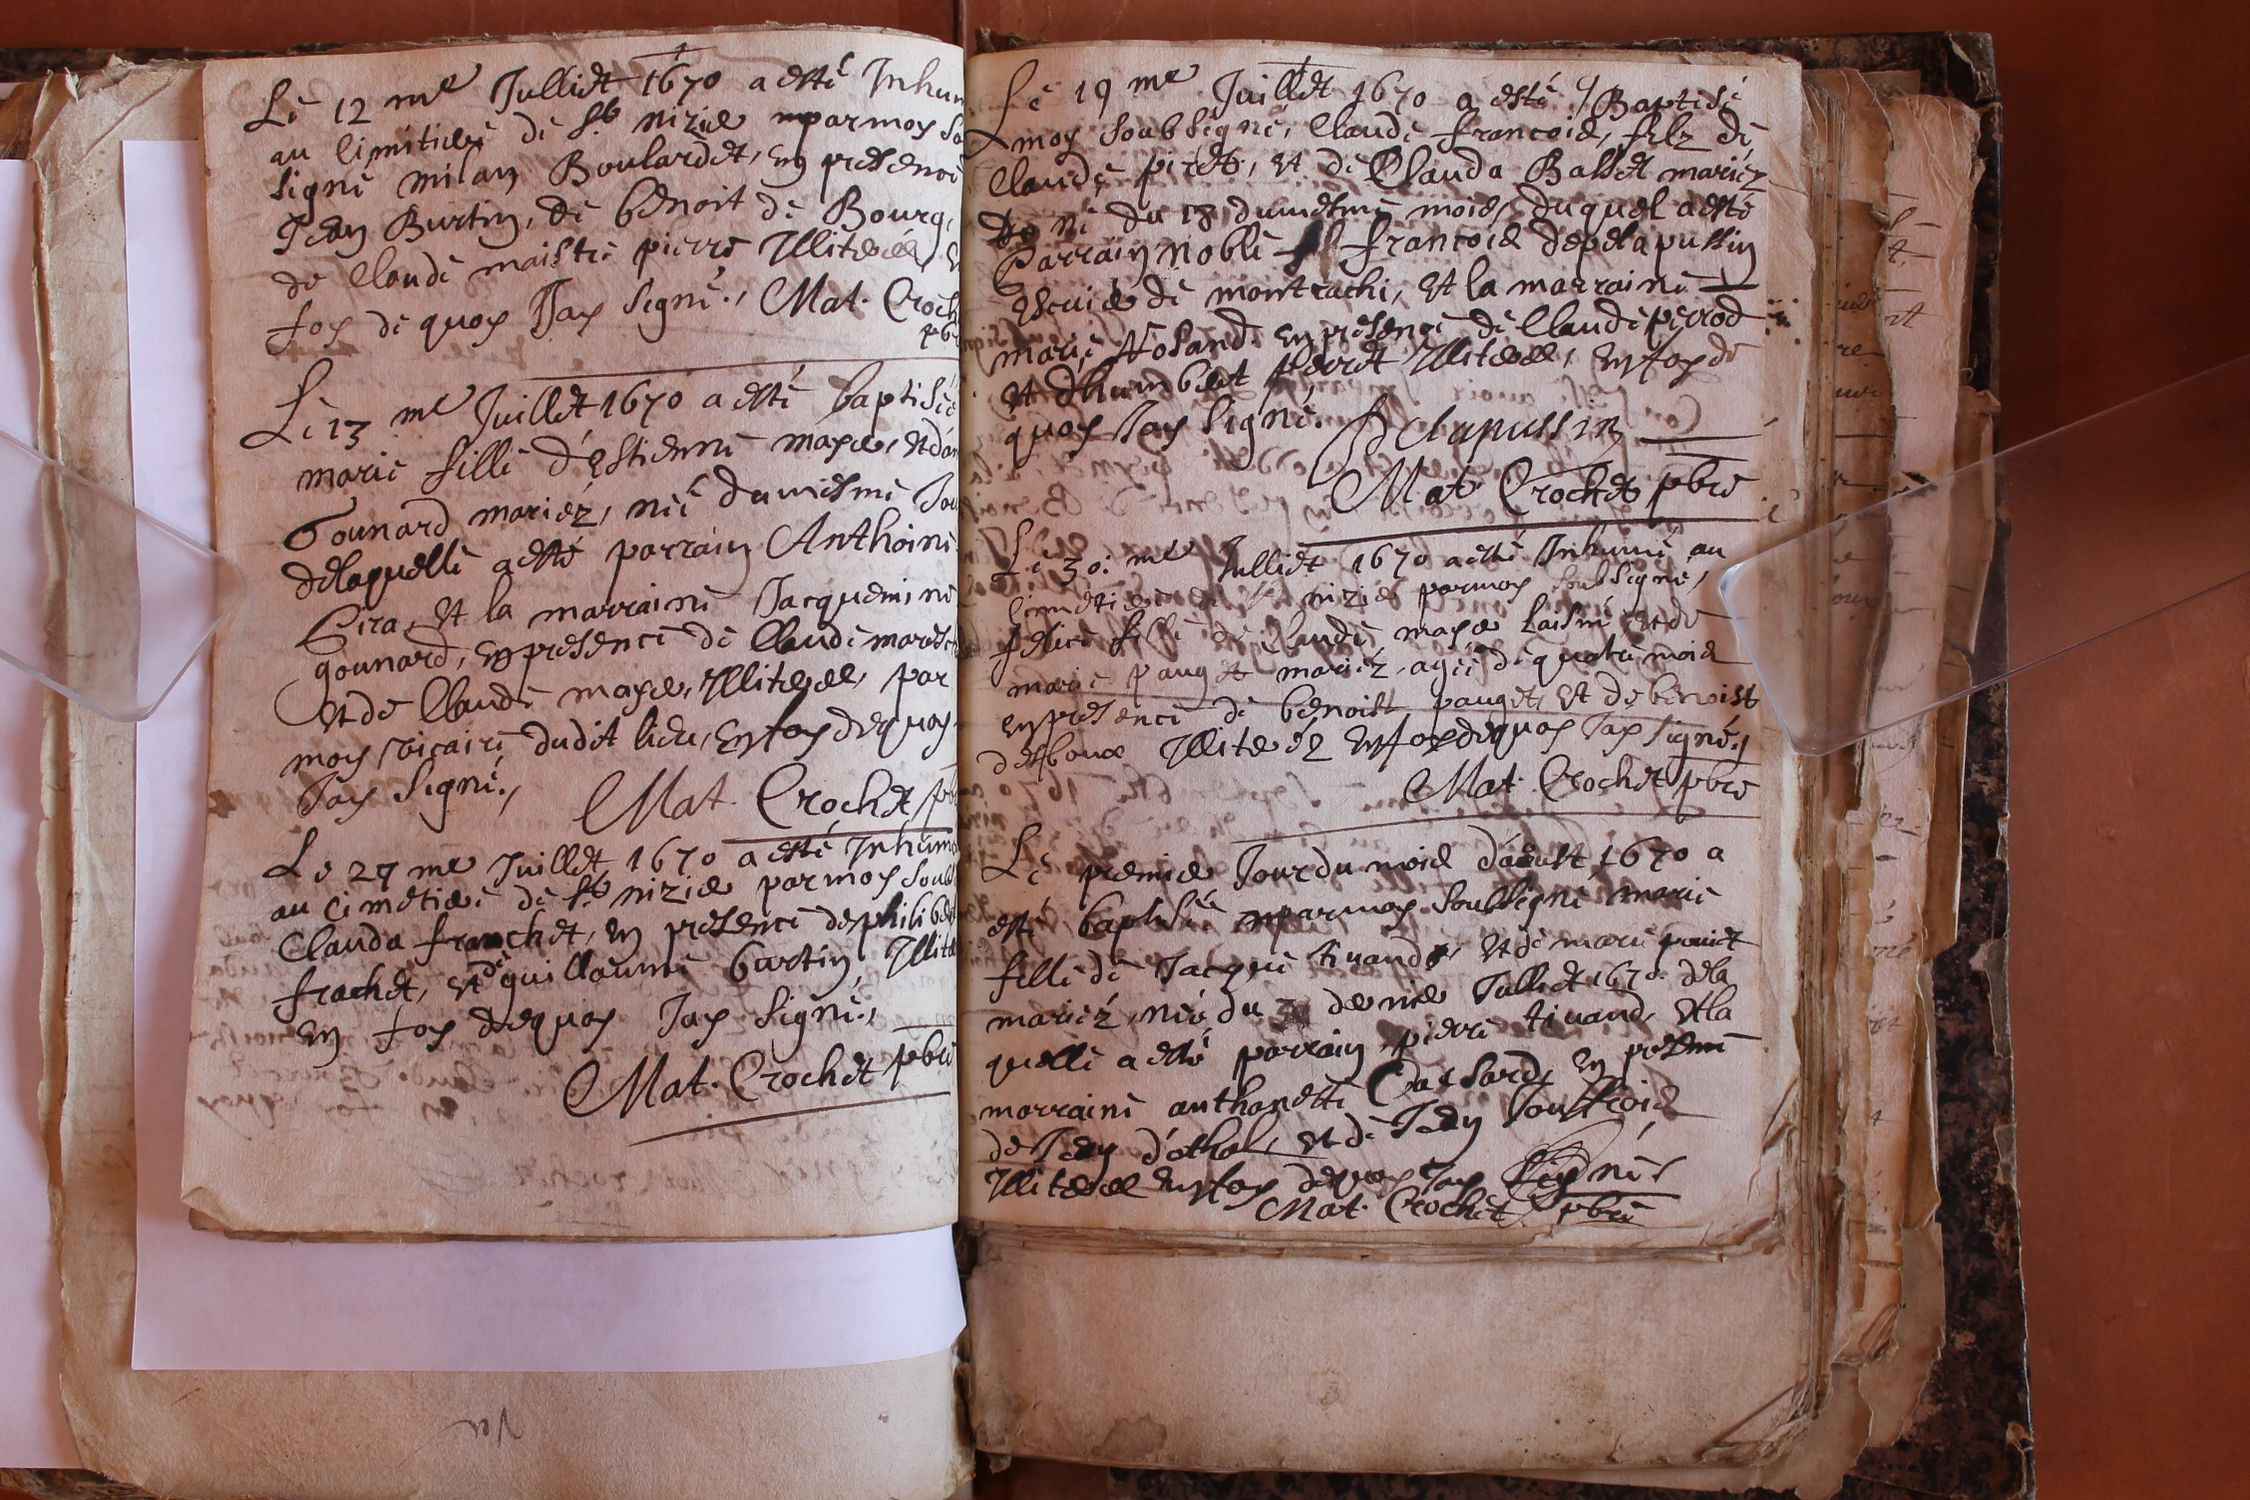 Le 12 me Julliet 1670 a esté Inhum
au cimitiere de St nizier parmoy So
Signé milan Boulardet, en presence
Jean Burtin, de benoit de Bourg,
de Claude maistre pierre Illiterés, E
foy de quoy Jay Signé., Mat. Croch
pb
Le 13 me Juillet 1670 a esté baptisée
marie fille d'Estienne maye, et d'an
Gounard mariéz, née du mesme Jou
delaquelle a esté parrain Anthoine
et la marraine Jacquemine
gounard, en presence de Claude maresc
et de Claude maye, Illiteres, par
moy vicaire dudit lieu, en foy de quoy
Jay Signé., Mat. Crochet pb
Le 27 me Juillet 1670 a esté Inhumé
au cimetiere de St nizier par moy Soub
Clauda franchet, en presence de philibe
frachet, et de guillaume burtin, Illite
en foy de quoy Jay Signé.,
Mat. Crochet pbre
Le 19 me Juillet 1670 a esté Baptisé
moy soubsigné, Claude francois, filz de
Claude piret, et de Clauda Basset mariez
né du 18 du mesme mois, duquel a esté
Parrain noble francois de pelapussin
escuier de montrachi, et la marraine
marie en presence de Claude perrod
et d'humbert perret Illiteres, en foy de
quoy Jay Signé.
Delapussin
Mat. Crochet pbre
Le 30. me Julliet 1670 a esté Inhumé au
cimetiere de St nizier parmoy soubsigné,
fille de Claude maye laisné et de
marie pauget mariéz, agée de quatre mois
en presence de benoist pauget, et de benoist
desboux Illiteréz en foy de quoy Jay Signé,
Mat. Crochet pbre
Le premier Jour du mois d'aoust, 1670 a
esté baptisée parmoy soubsigné marie
fille de Jacque tivand, et de marie
mariéz, née du dernier Julliet 1670. dela
quelle a esté parrain pierre tivand, et la
marraine anthonette Cassard, en presence
de Jean d'othal, et de Jean Jouffrois
Illiteres en foy de quoy Jay Signé
Mat. Crochet pbre